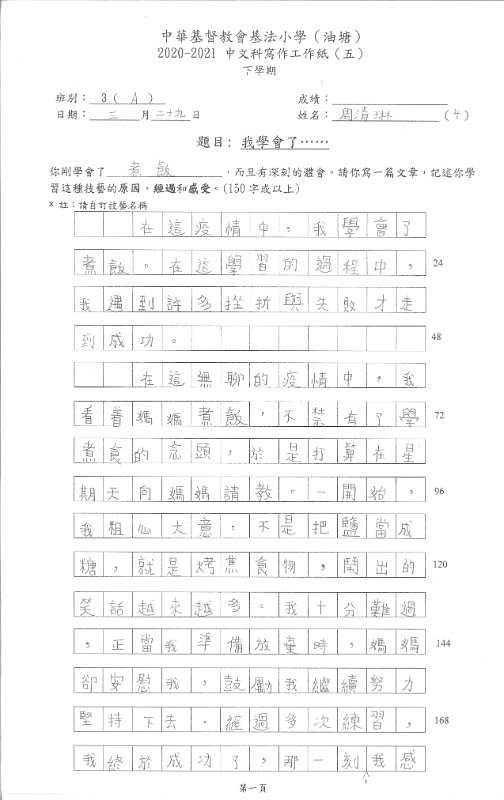 中華基督教會基法小學（油塘）
2020-2021 中文科寫作工作紙（五）
下學期
班別： 3（ A ） 成績：
日期： 三 月 二十九 日 姓名： 周清琳 （4）
題目：我學會了……
你剛學會了 煮飯 ，而且有深刻的體會。請你寫一篇文章，記述你學
習這種技藝的原因、經過和感受。(150 字或以上)
* 註：請自訂技藝名稱
在這疫情中，我學會了
煮飯。在這學習的過程中， 24
我遇到許多挫折與失敗才走
到成功。 48
在這無聊的疫情中，我
看着媽媽煮飯，不禁有了學 72
煮食的念頭，於是打算在星
期天向媽媽請教。一開始， 96
我粗心大意，不是把鹽當成
糖，就是烤焦食物，鬧出的 120
笑話越來越多。我十分難過
，正當我準備放棄時，媽媽 144
卻安慰我，鼓勵我繼續努力
堅持下去。經過多次練習， 168
我終於成功了，那一刻，我感
第一頁